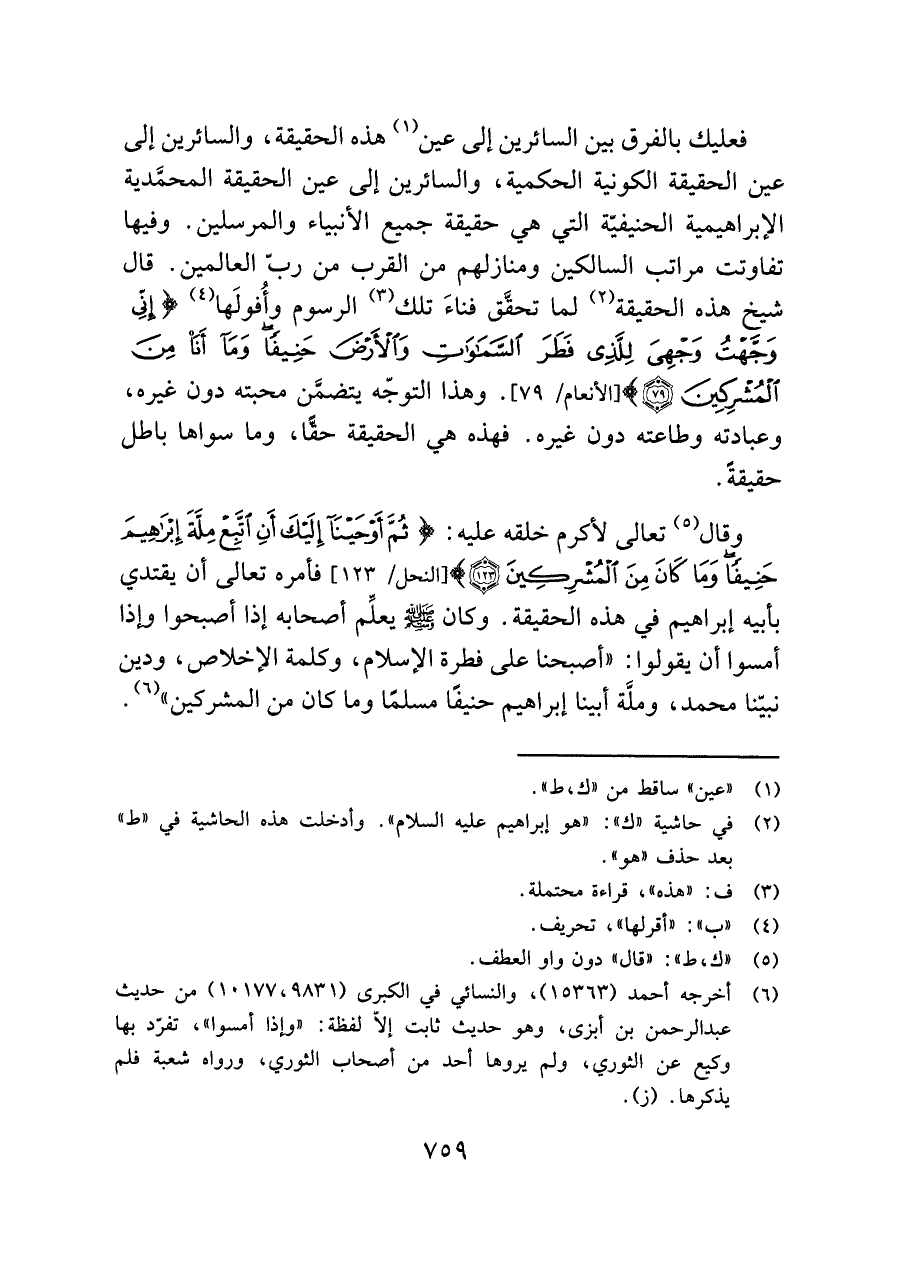 فعليك بالفرق بين السائرين إلى عين(١) هذه الحقيقة، والسائرين إلى
عين الحقيقة الكونية الحكمية، والسائرين إلى عين الحقيقة المحمَّدية
الإبراهيمية الحنيفيّة التي هي حقيقة جميع الأنبياء والمرسلين. وفيها
تفاوتت مراتب السالكين ومنازلهم من القرب من ربّ العالمين. قال
شيخ هذه الحقيقة(٢) لما تحقَّق فناءَ تلك(٣) الرسوم وأُفولَها(٤) ﴿ إِنِّي
وَجَّهْتُ وَجْهِيَ لِلَّذِي فَطَرَ السَّمَٰوَٰتِ وَالْأَرْضَ حَنِيفًا ۖ وَمَآ أَنَا۠ مِنَ
الْمُشْرِكِينَ ٧٩ ﴾[الأنعام/ ٧٩]. وهذا التوجّه يتضمَّن محبته دون غيره،
وعبادته وطاعته دون غيره. فهذه هي الحقيقة حقًّا، وما سواها باطل
حقيقةً.
وقال(٥) تعالى لأكرم خلقه عليه: ﴿ ثُمَّ أَوْحَيْنَآ إِلَيْكَ أَنِ اتَّبِعْ مِلَّةَ إِبْرَٰهِيمَ
حَنِيفًا ۖ وَمَا كَانَ مِنَ الْمُشْرِكِينَ ١٢٣ ﴾[النحل/ ١٢٣] فأمره تعالى أن يقتدي
بأبيه إبراهيم في هذه الحقيقة. وكان ﷺ يعلِّم أصحابه إذا أصبحوا وإذا
أمسوا أن يقولوا: «أصبحنا على فطرة الإسلام، وكلمة الإخلاص، ودين
نبيّنا محمد، وملَّة أبينا إبراهيم حنيفًا مسلمًا وما كان من المشركين»(٦).
(١) «عين» ساقط من «ك، ط».
(٢) في حاشية «ك»: «هو إبراهيم عليه السلام». وأدخلت هذه الحاشية في «ط»
بعد حذف «هو».
(٣) ف: «هذه»، قراءة محتملة.
(٤) «ب»: «أقرلها»، تحريف.
(٥) «ك، ط»: «قال» دون واو العطف.
(٦) أخرجه أحمد (١٥٣٦٣)، والنسائي في الكبرى (٩٨٣١، ١٠١٧٧) من حديث
عبدالرحمن بن أبزى، وهو حديث ثابت إلاّ لفظة: «وإذا أمسوا»، تفرّد بها
وكيع عن الثوري، ولم يروها أحد من أصحاب الثوري، ورواه شعبة فلم
يذكرها. (ز).
٧٥٩